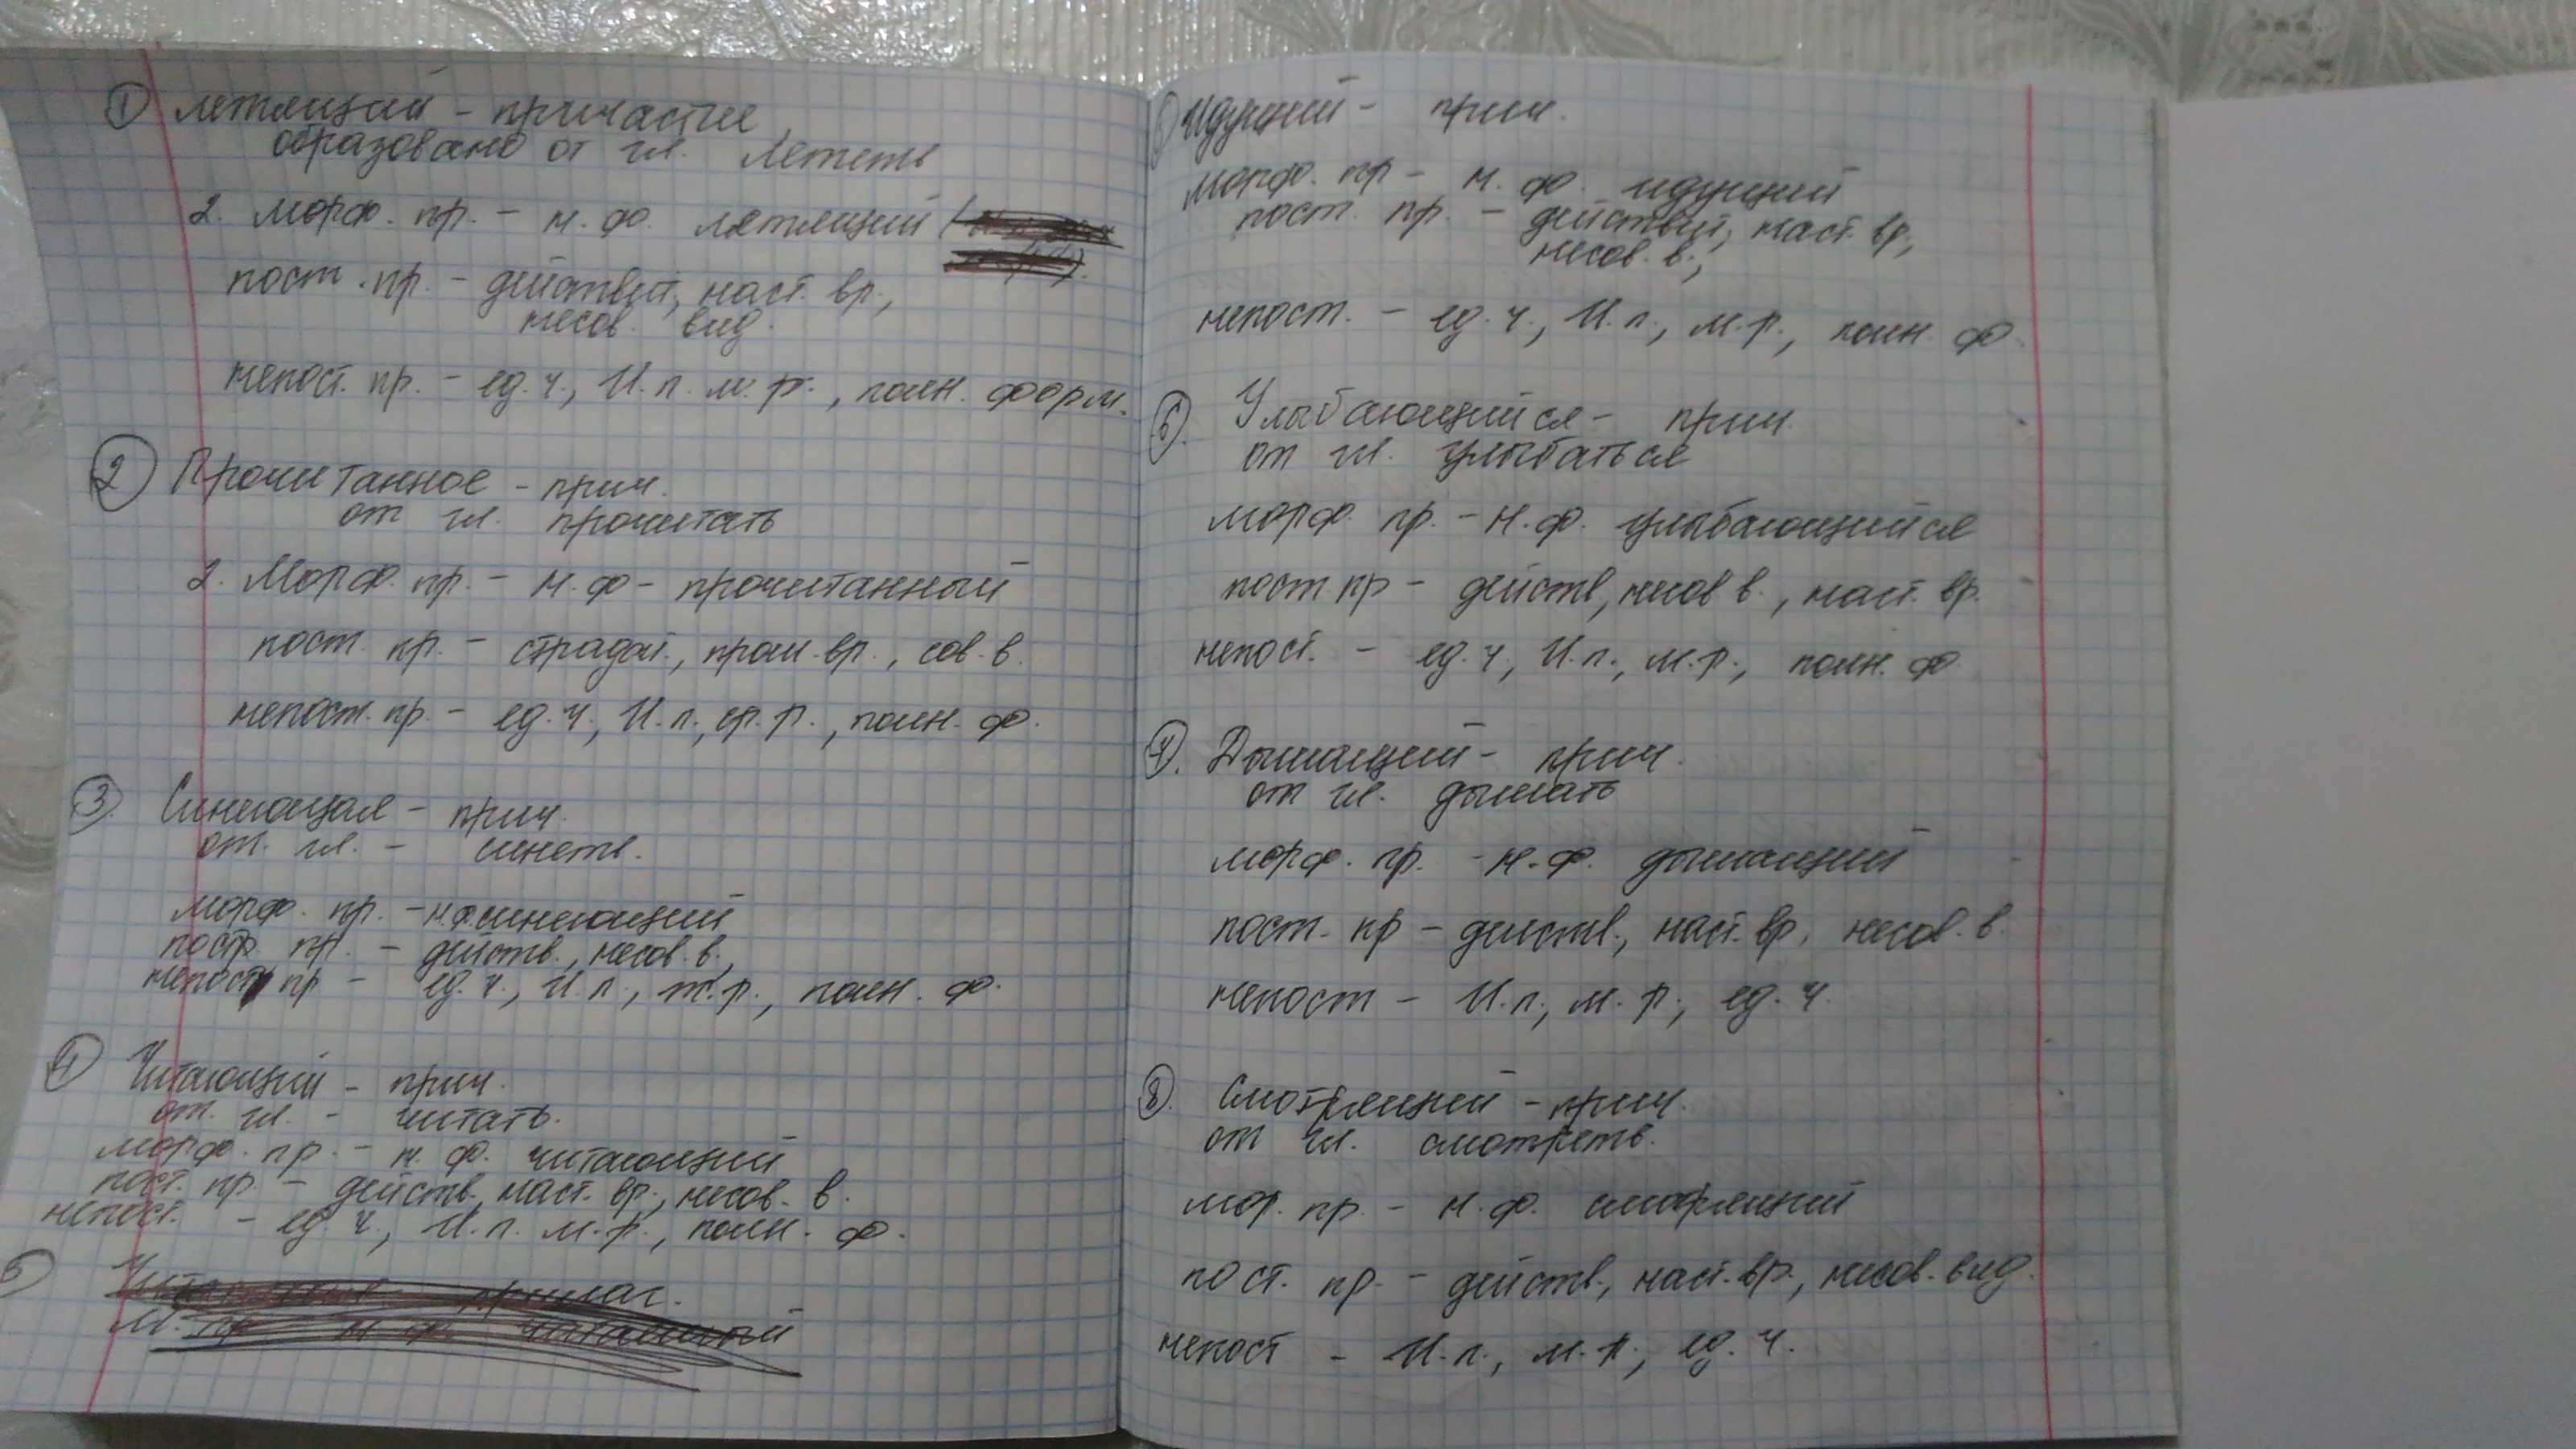 ① летящий - причастие,
образовано от гл. лететь
2. морф. пр. - н. ф. летящий (
пост. пр. - действит, наст. вр.,
несов. вид.
непост. пр. - ед. ч., И. п. м. р., полн. форм.
② Прочитанное - прич.
от гл. прочитать
2. Морф. пр. - н. ф - прочитанный
пост. пр. - страдат., прош. вр., сов. в.
непост. пр. - ед. ч., И. п., ср. р., полн. ф.
③ Синеющая - прич.
от. гл. - синеть.
морф. пр. - н. ф. синеющий
пост. пр. - действ., несов. в.,
непост. пр - ед. ч., И. п., ж. р., полн. ф.
④ Читающий - прич.
от. гл. - читать.
морф. пр. - н. ф. читающий
пост. пр. - действ., наст. вр., несов. в.
непост. - ед. ч., И. п. м. р., полн. ф.
5
Идущий - прич.
морф. пр - н. ф. идущий
пост. пр. - действит, наст. вр.,
несов. в.,
непост. - ед. ч., И. п., м. р., полн. ф.
⑥. Улыбающийся - прич.
от гл. улыбаться
морф. пр. - н. ф. улыбающийся
пост. пр - действ, несов в., наст. вр.
непост. - ед. ч., И. п., м. р., полн. ф
⑦. Дышащий - прич.
от гл. дышать
морф. пр. - н. ф. дышащий
пост. пр - действ., наст. вр, несов. в.
непост - И. п., м. р., ед. ч.
⑧. Смотрящий - прич.
от гл. смотреть.
мор. пр. - н. ф. смотрящий
пост. пр. - действ., наст. вр., несов. вид.
непост - И. п., м. р., ед. ч.